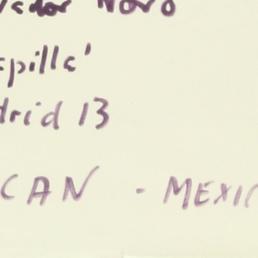 vador Novo
apilla'
drid 13
CAN - MEXIC